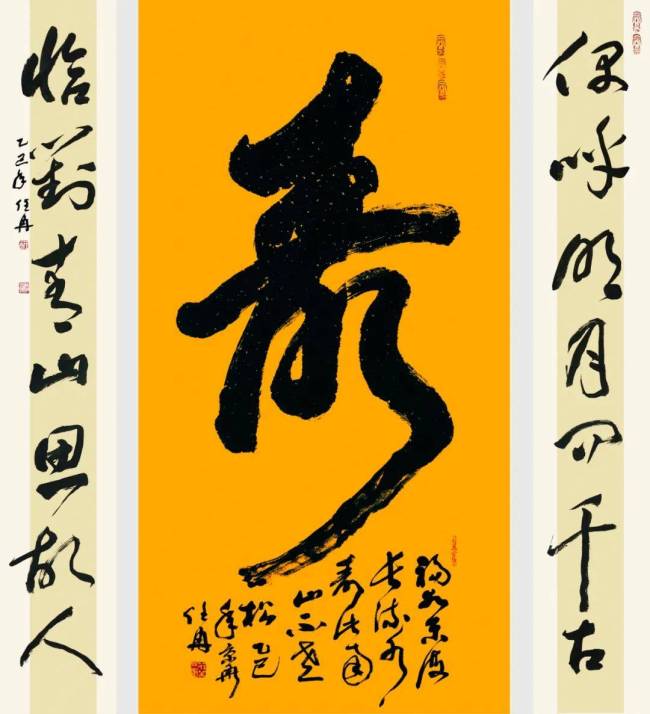 偶呼明月问千古
寿
福如东海
长流水
寿比南
山不老
松 乙巳
年
任冉
恰對青山思故人
乙巳年 任冉